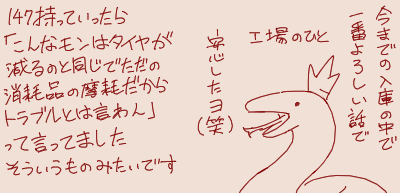 147持っていったら
「こんなモンはタイヤが
減るのと同じでただの
消耗品の摩耗だから
トラブルとは言わん」
って言ってました
そういうものみたいです
工場のひと
今までの入庫の中で
一番よろしい話で
安心したヨ
(笑)